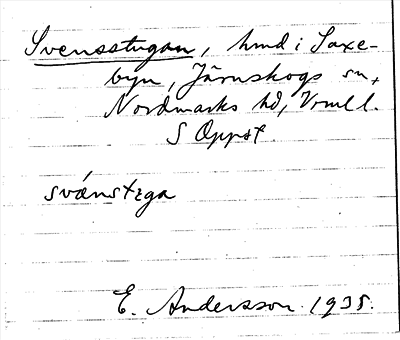 Svensstugan, hmd i Saxe-
byn, Järnskogs sn,
Nordmarks hd, Vrml l.
S Oppst.
svǽnstɐga
E. Andersson 1935.